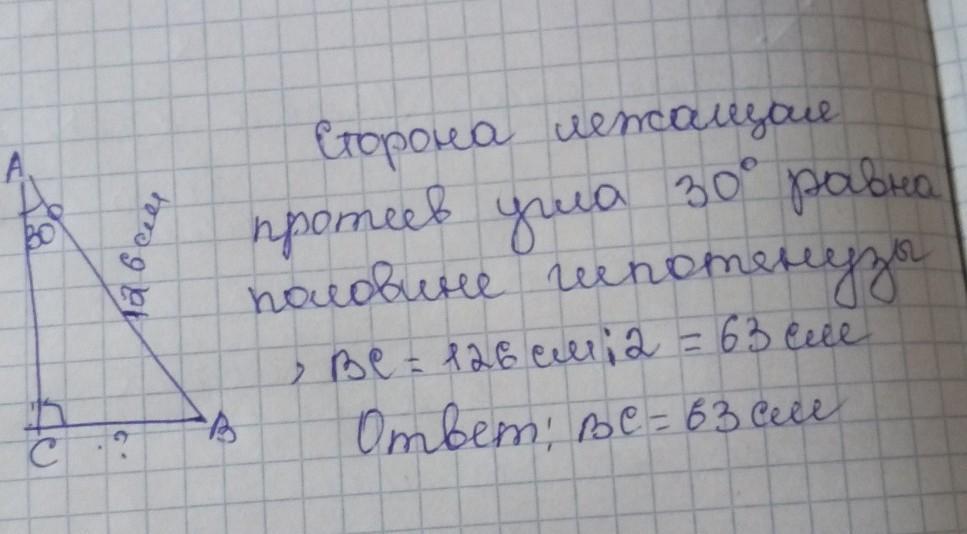 Сторона лежащая
A
против угла 30° равна
30°
126 см
половине гипотенузы
, BC = 126 см : 2 = 63 см
C ? B
Ответ: BC = 63 см